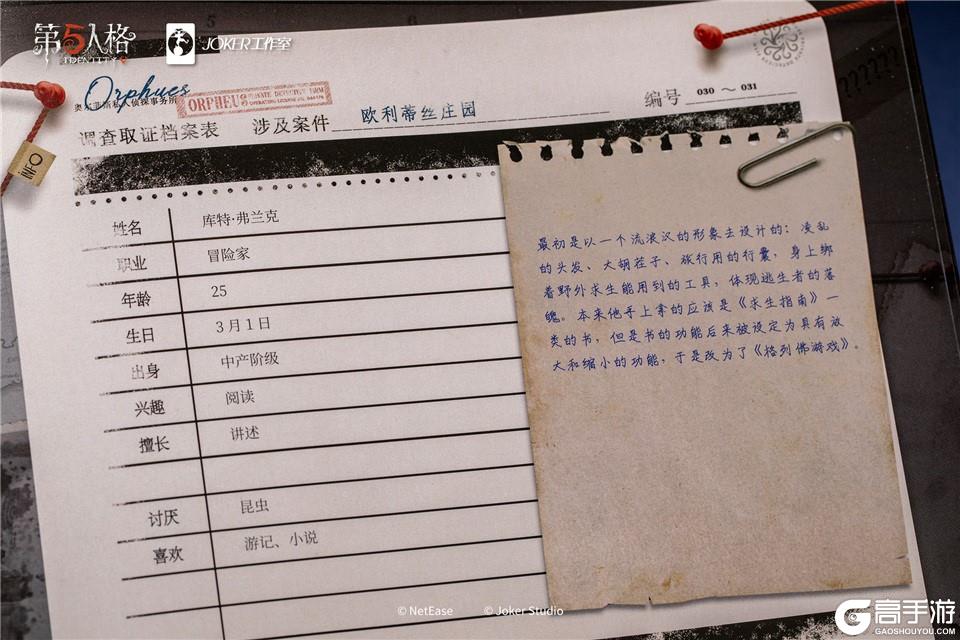 第5人格
IDENTITY V
JOKER工作室
Orpheus
奥尔菲斯私人侦探事务所
ORPHEUS PRIVATE DETECTIVE FIRM
调查取证档案表 涉及案件 欧利蒂丝庄园 编号 030 ~ 031
INFO
姓名 库特·弗兰克
职业 冒险家
年龄 25
生日 3月1日
出身 中产阶级
兴趣 阅读
擅长 讲述
讨厌 昆虫
喜欢 游记、小说
最初是以一个流浪汉的形象去设计的：凌乱
的头发、大胡茬子、旅行用的行囊，身上绑
着野外求生能用到的工具，体现逃生者的落
魄。本来他手上拿的应该是《求生指南》一
类的书，但是书的功能后来被设定为具有放
大和缩小的功能，于是改为了《格列佛游戏》。
© NetEase © Joker Studio
高手游
GAOSHOUYOU.COM